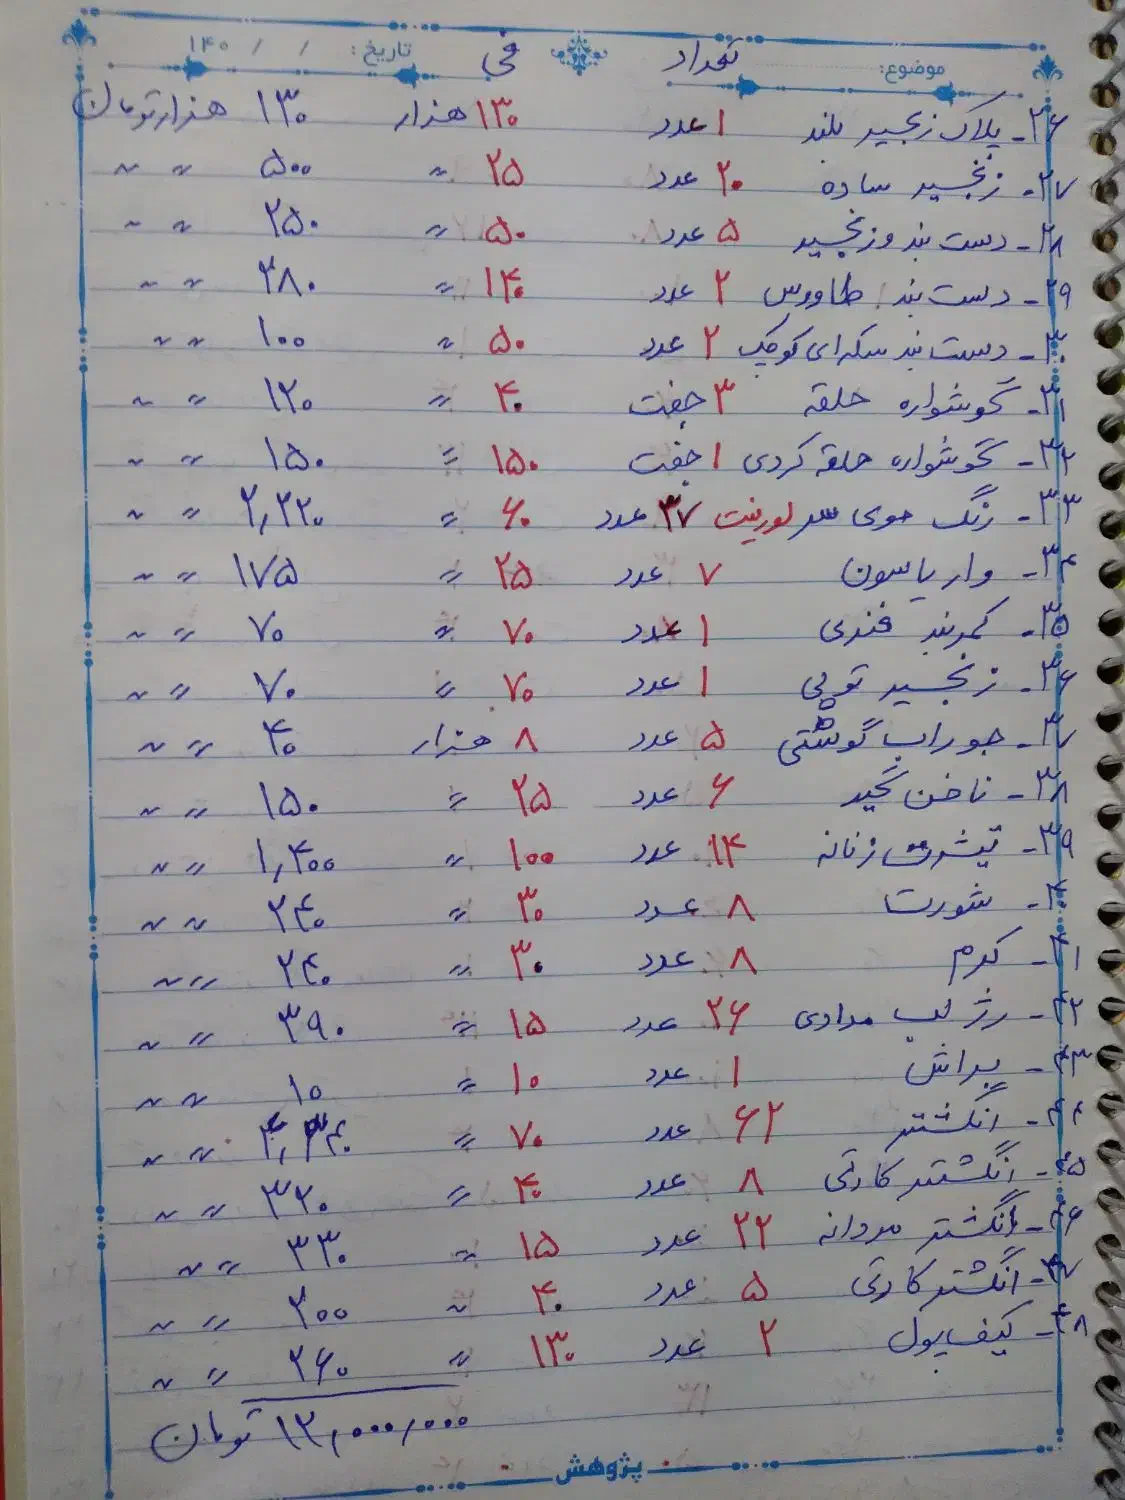 موضوع: تعداد فی تاریخ: / / ۱۴۰
۲۶- پلاک زنجیر بلند ۱ عدد ۱۳۰ هزار ۱۳۰ هزار تومان
۲۷- زنجیر ساده ۲۰ عدد ۲۵ " ۵۰۰ " "
۲۸- دست بند و زنجیر ۵ عدد ۵۰ " ۲۵۰ " "
۲۹- دست بند طاووس ۲ عدد ۱۴۰ " ۲۸۰ " "
۳۰- دست بند سکه ای کوچک ۲ عدد ۵۰ " ۱۰۰ " "
۳۱- گوشواره حلقه ۳ جفت ۴۰ " ۱۲۰ " "
۳۲- گوشواره حلقه کردی ۱ جفت ۱۵۰ " ۱۵۰ " "
۳۳- رنگ موی سر لورینت ۳۷ عدد ۶۰ " ۲,۲۲۰ " "
۳۴- واریاسون ۷ عدد ۲۵ " ۱۷۵ " "
۳۵- کمربند فنری ۱ عدد ۷۰ " ۷۰ " "
۳۶- زنجیر توپی ۱ عدد ۷۰ " ۷۰ " "
۳۷- جوراب گوشتی ۵ عدد ۸ هزار ۴۰ " "
۳۸- ناخن گیر ۶ عدد ۲۵ " ۱۵۰ " "
۳۹- تیشرت زنانه ۱۴ عدد ۱۰۰ " ۱,۴۰۰ " "
۴۰- شورت ۸ عدد ۳۰ " ۲۴۰ " "
۴۱- کرم ۸ عدد ۳۰ " ۲۴۰ " "
۴۲- رژ لب مدادی ۲۶ عدد ۱۵ " ۳۹۰ " "
۴۳- براش ۱ عدد ۱۰ " ۱۰ " "
۴۴- انگشتر ۶۲ عدد ۷۰ " ۴,۳۴۰ " "
۴۵- انگشتر کارتی ۸ عدد ۴۰ " ۳۲۰ " "
۴۶- انگشتر مردانه ۲۲ عدد ۱۵ " ۳۳۰ " "
۴۷- انگشتر کارتی ۵ عدد ۴۰ " ۲۰۰ " "
۴۸- کیف پول ۲ عدد ۱۳۰ " ۲۶۰ " "
۱۲,۰۰۰,۰۰۰ تومان
پژوهش